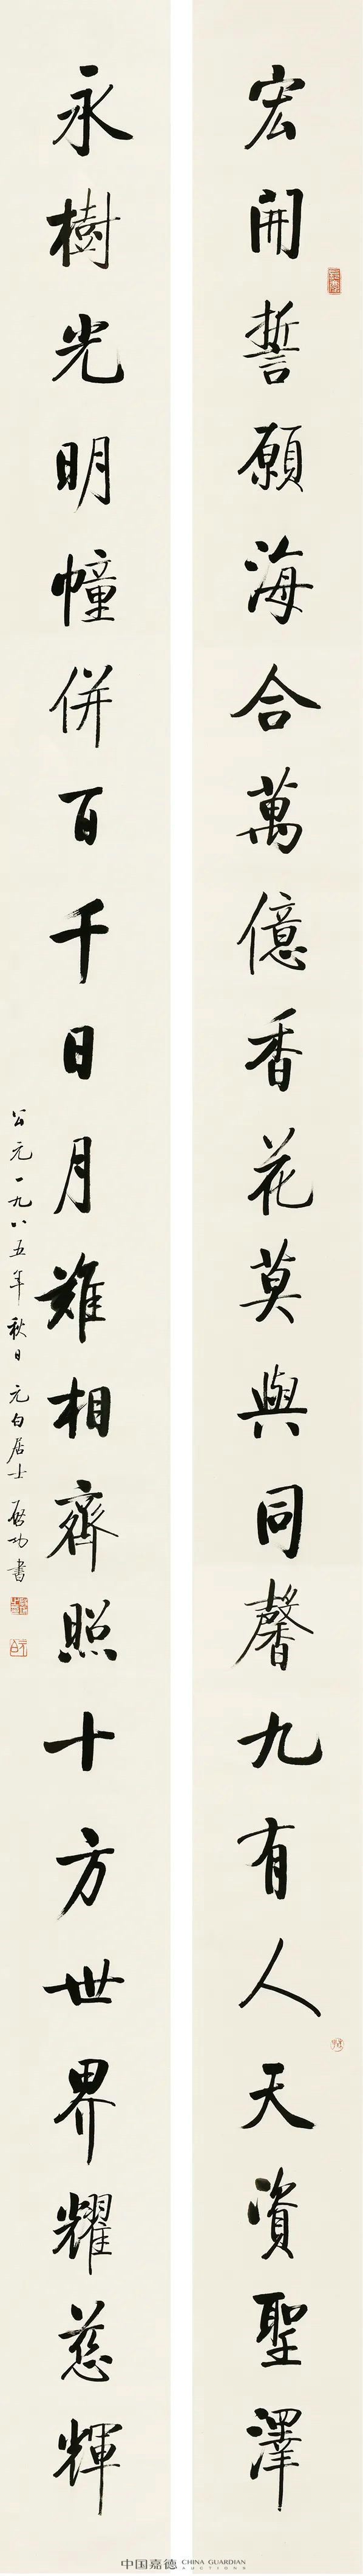 宏開誓願海合萬億香花莫與同馨九有人天資聖澤
永樹光明幢併百千日月難相齊照十方世界耀慈輝
公元一九八五年秋日 元白居士 啓功書
中国嘉德 CHINA GUARDIAN
AUCTIONS